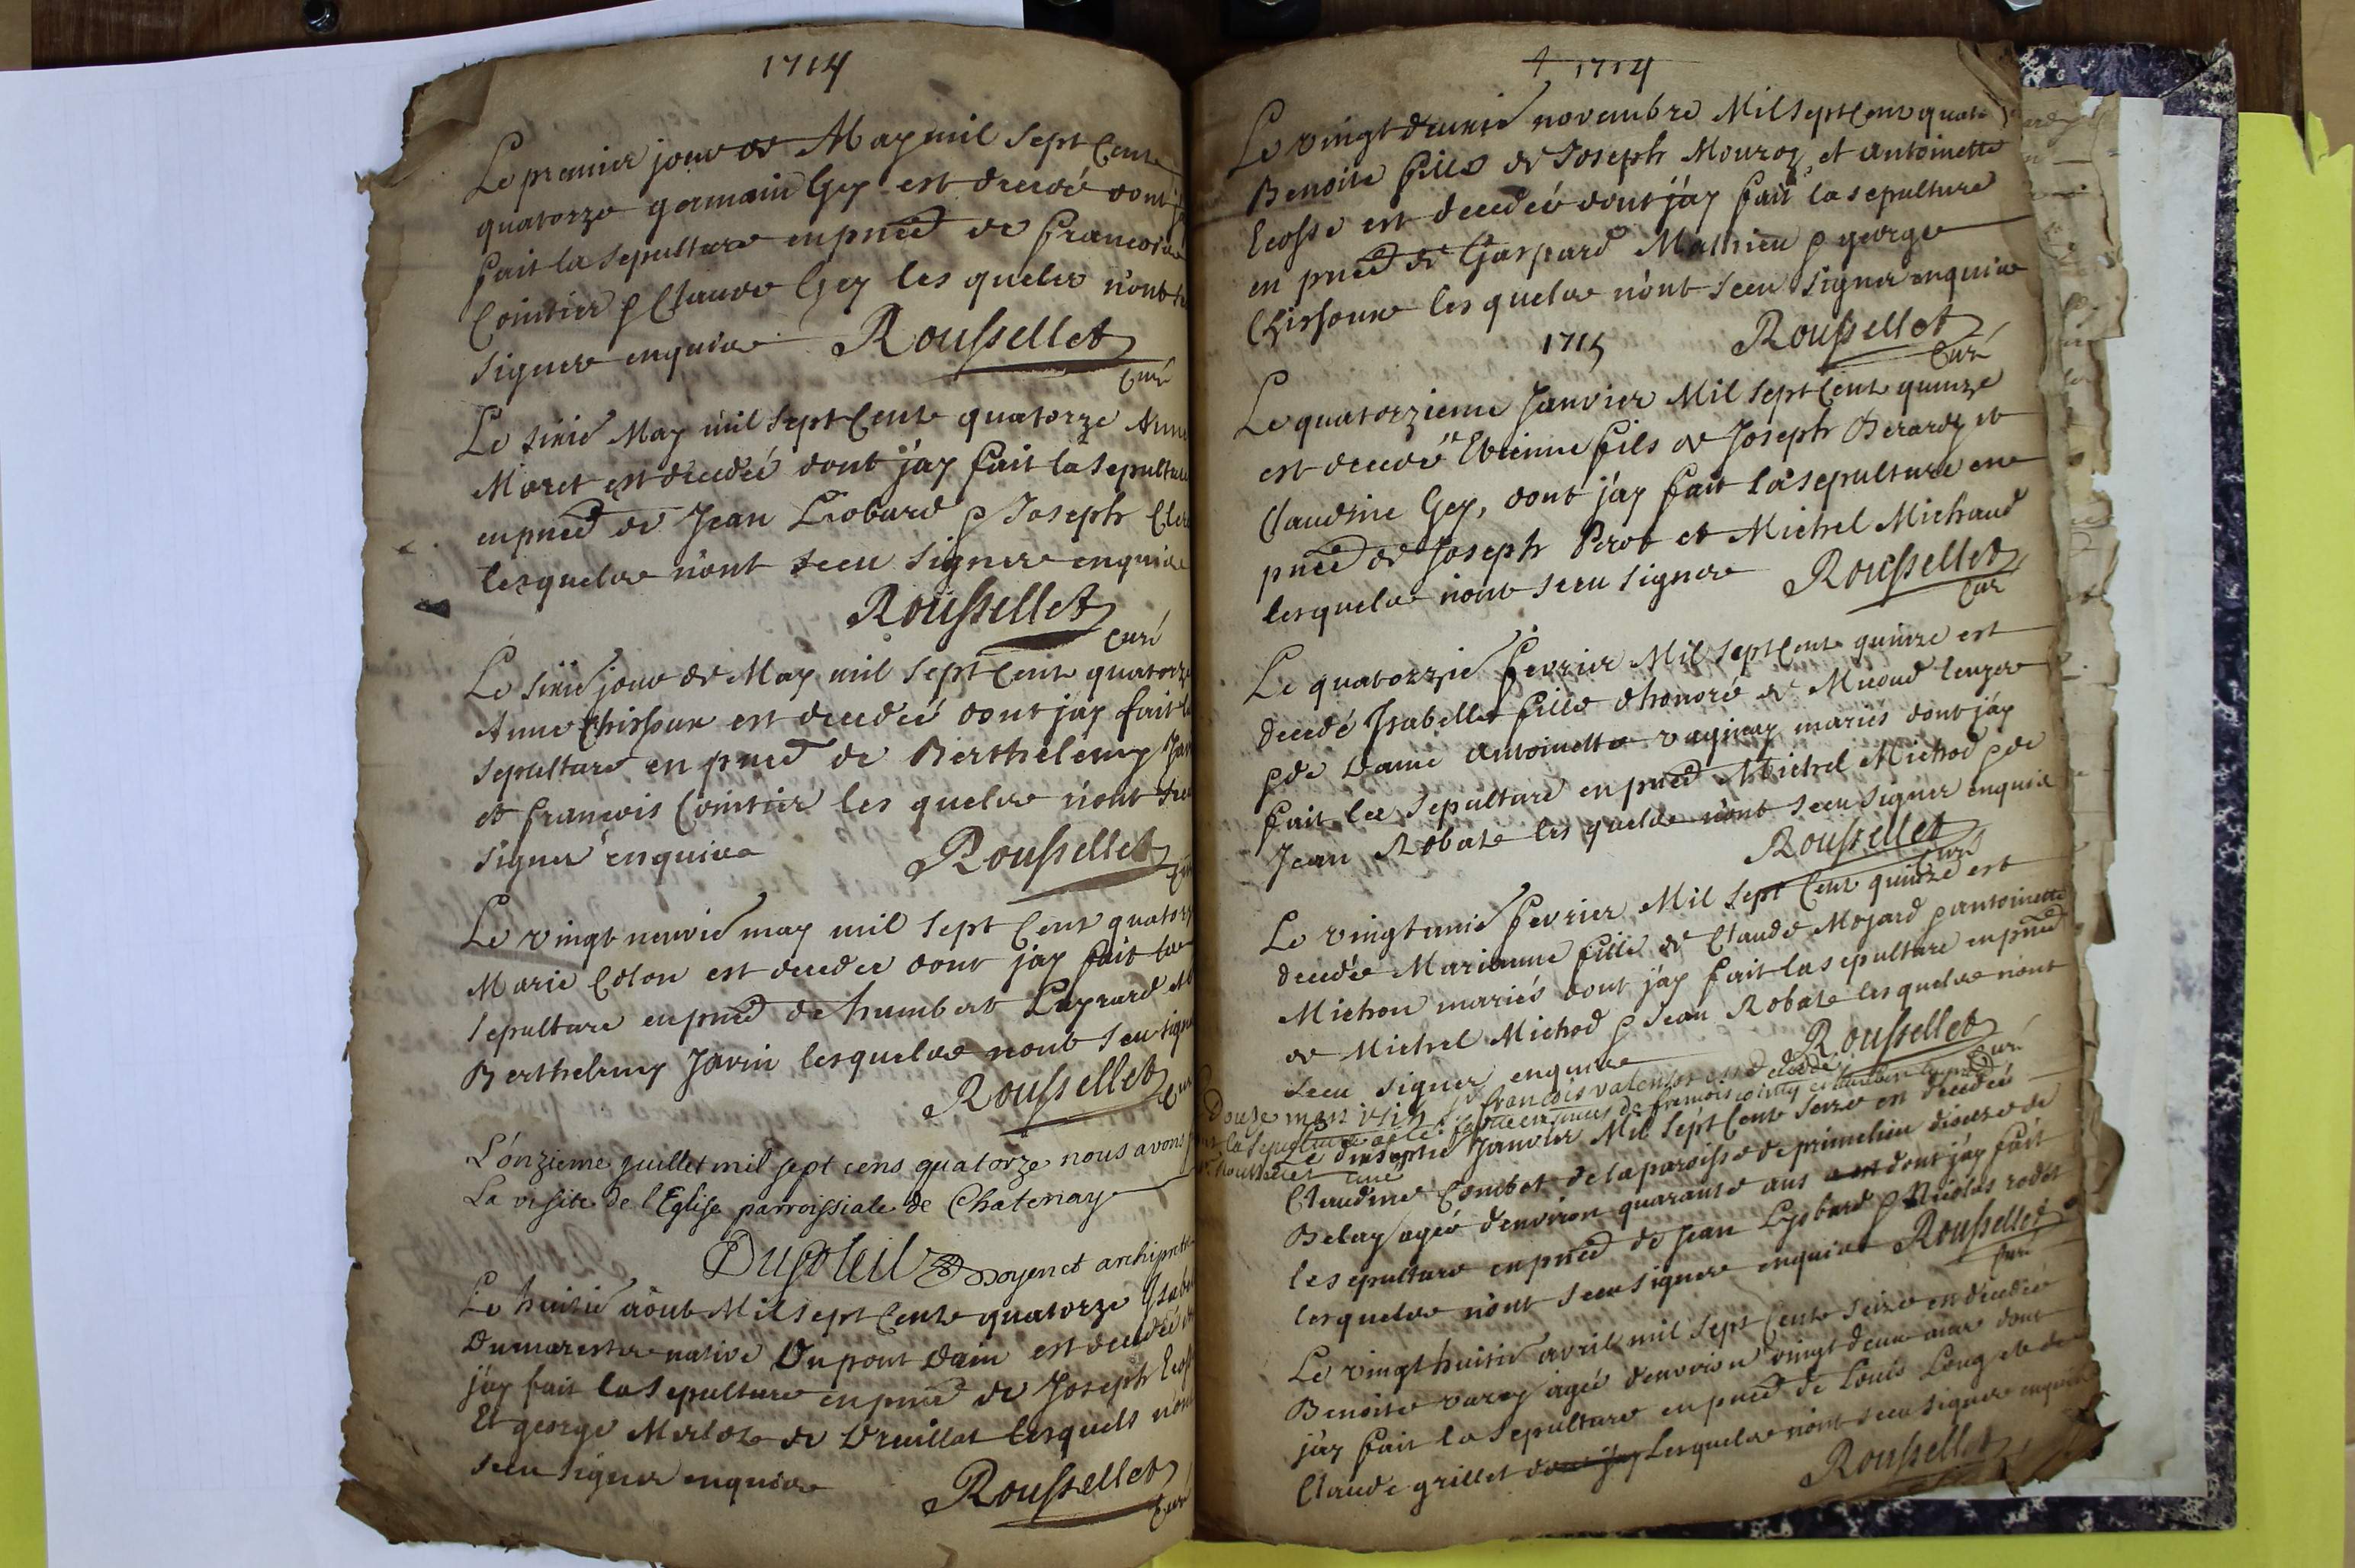 1714
Le premier jour de May mil sept Cent
quatorze germain Gey est decedé dont
fait la sepulture en pnce de francois
Cointier & Claude Gey les quels n'ont
signer enquis Roussellet
Curé
Le sixie May mil sept Cent quatorze Anne
Moret est decedée dont j'ay fait la sepulture
en pnce de Jean Liobard & Joseph
lesquels n'ont sceu signer enquis
Roussellet
Curé
Le sixie jour de May mil sept Cent quatorze
Anne Chissoux est decedée dont j'ay fait la
sepulture en pnce de Berthelemy
et francois Cointier les quels n'ont sceu
signer enquis Roussellet
Le vingt neuvie may mil sept Cent quatorze
Marie Colon est decedee dont j'ay fait la
sepulture en pnce de humbert Layrard et
Berthelemy Javin lesquels n'ont sceu signer
Roussellet
L'onzieme juillet mil sept cens quatorze nous avons
La visite de l'Eglise parroissiale de Chatenay
Dusoleil Doyen et archiprêtre
Le huitie aout Mil sept Cent quatorze
Dumarest native Du pont Dain est decedée
j'ay fait la sepulture en pnce de Joseph
Et george Merloz de Druillat lesquels n'ont
sceu signer enquis Roussellet
Curé
1714
Le vingt deuxie novembre Mil sept Cent
Benoite fille de Joseph Mouroz et Antoinette
Ecosse est decedée dont j'ay fait la sepulture
en pnce de Gaspard Mathieu & george
Chissoux les quels n'ont sceu signer enquis
1715 Roussellet
Curé
Le quatorzieme Janvier Mil sept Cent quinze
est decedé Etienne fils de Joseph Berardy et
Claudine Gey, dont j'ay fait la sepulture en
pnce de Joseph Perot et Michel Michaud
lesquels n'ont sceu signer Roussellet
Curé
Le quatorzie fevrier Mil sept Cent quinze est
decedé Isabelle fille d'honoré
& de Dame Antoinette mariés dont j'ay
fait la sepulture en pnce Michel Michod & de
Jean Robate les quels n'ont sceu signer enquis
Roussellet
Curé
Le vingt unie fevrier Mil sept Cent quinze est
decedée Marianne fille de Claude Mojard & antoinette
Michon mariés dont j'ay fait la sepulture en pnce
de Michel Michod & Jean Robate les quels n'ont
sceu signer enquis Roussellet
Curé
francois est decedé
la sepulture
Le dixseptie Janvier Mil sept Cent seize est decedée
Claudine Combet de la paroisse de diocese de
Belay agée d'environ quarante ans dont j'ay fait
la sepulture en pnce de Jean Lyobard & Nicolas rodet
lesquels n'ont sceu signer enquis Roussellet
Curé
Le vingt huitie avril mil sept Cent seize est decedée
Benoite varey agée d'environ vingt deux ans dont
j'ay fait la sepulture en pnce de Louis Long et de
Claude grillet lesquels n'ont sceu signer enquis
Roussellet